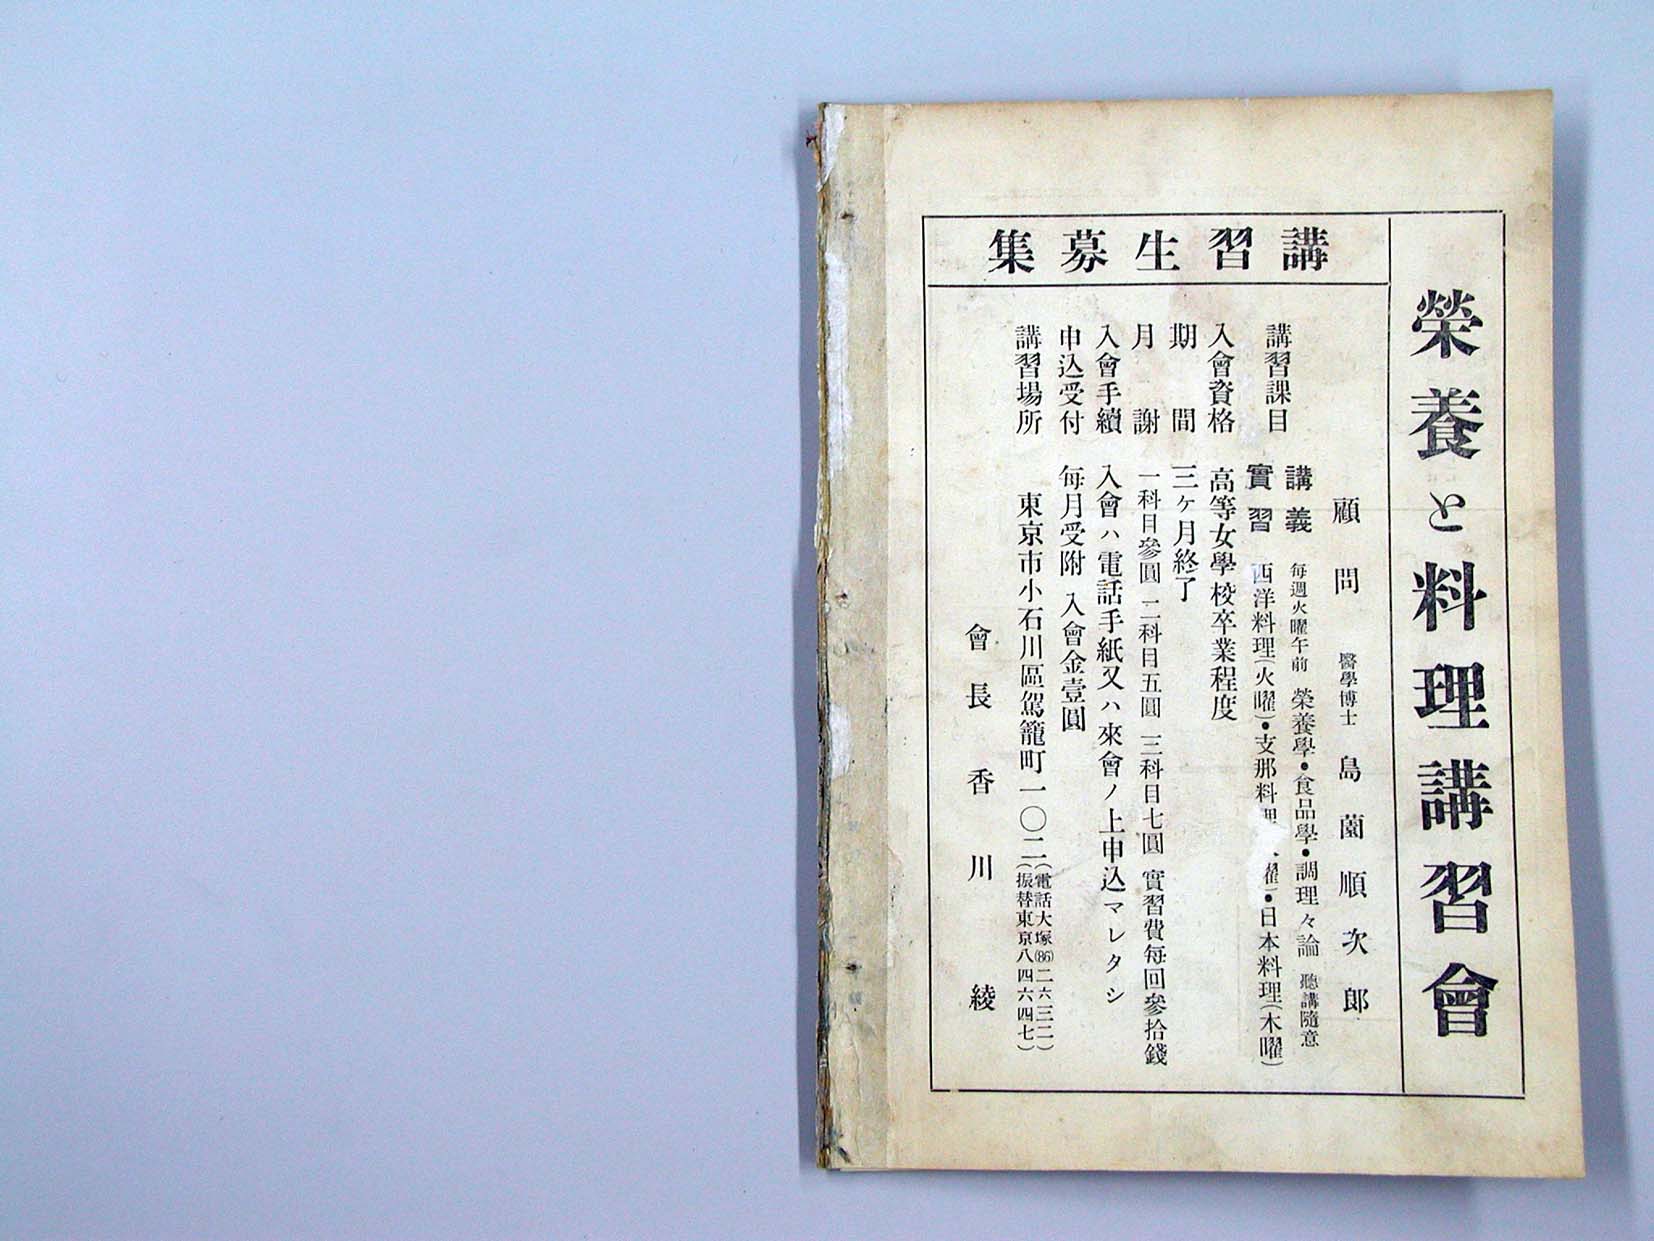 榮養と料理講習會
講習生募集
顧問 醫學博士 島薗順次郎
講習課目 講義 每週火曜午前 榮養學・食品學・調理々論 聽講隨意
實習 西洋料理(火曜)・支那料 曜)・日本料理(木曜)
入會資格 高等女學校卒業程度
期間 三ケ月終了
月謝 一科目參圓 二科目五圓 三科目七圓 實習費每回參拾錢
入會手續 入會ハ電話手紙又ハ來會ノ上申込マレタシ
申込受付 每月受附 入會金壹圓
講習場所 東京市小石川區駕籠町一〇二(電話大塚(86)二六三二)
(振替東京八四六四七)
會長 香川綾